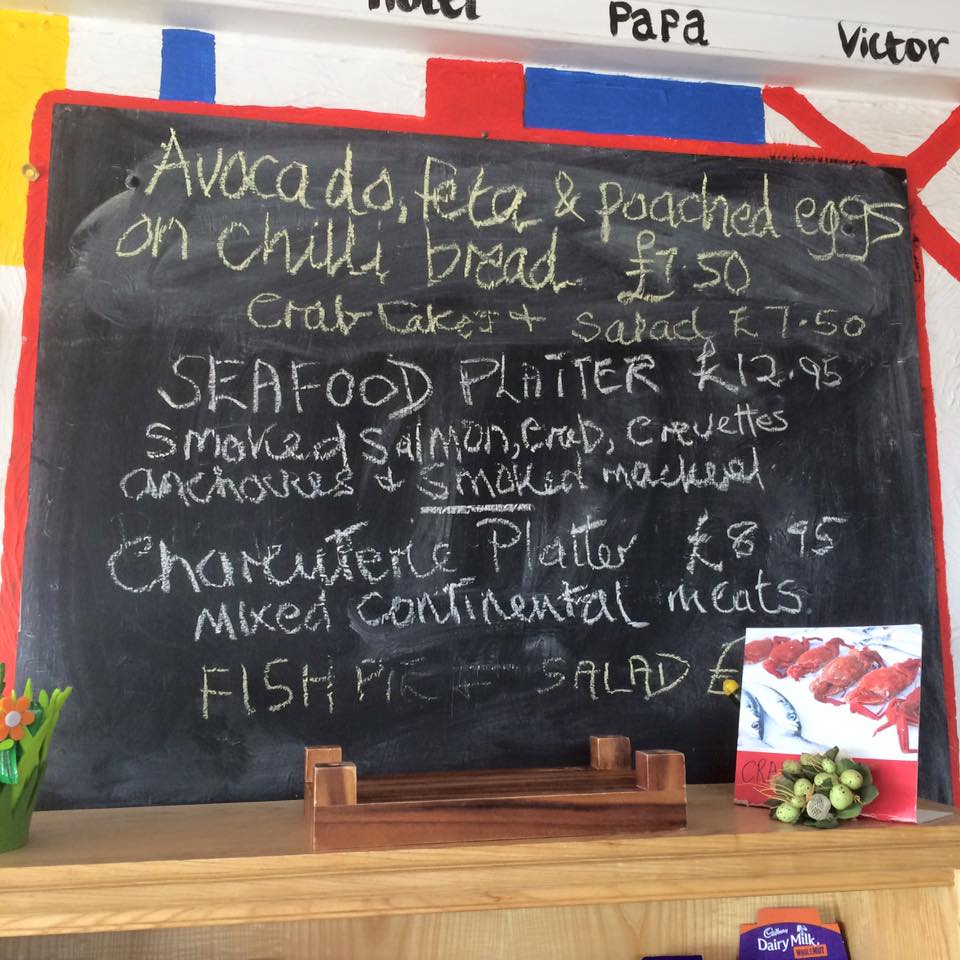 Hotel Papa Victor
Avocado, feta & poached eggs
on chilli bread £7.50
Crab Cakes + Salad £7.50
SEAFOOD PLATTER £12.95
Smoked Salmon, Crab, Crevettes
anchovies & Smoked mackerel
Charcuterie Platter £8 95
Mixed continental meats
FISH PIE + SALAD £
CRA
Cadbury
Dairy Milk
WHOLE NUT